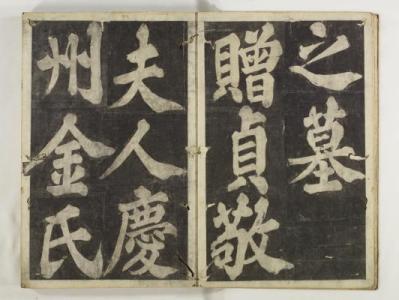 之墓
贈貞敬
夫人慶
州金氏